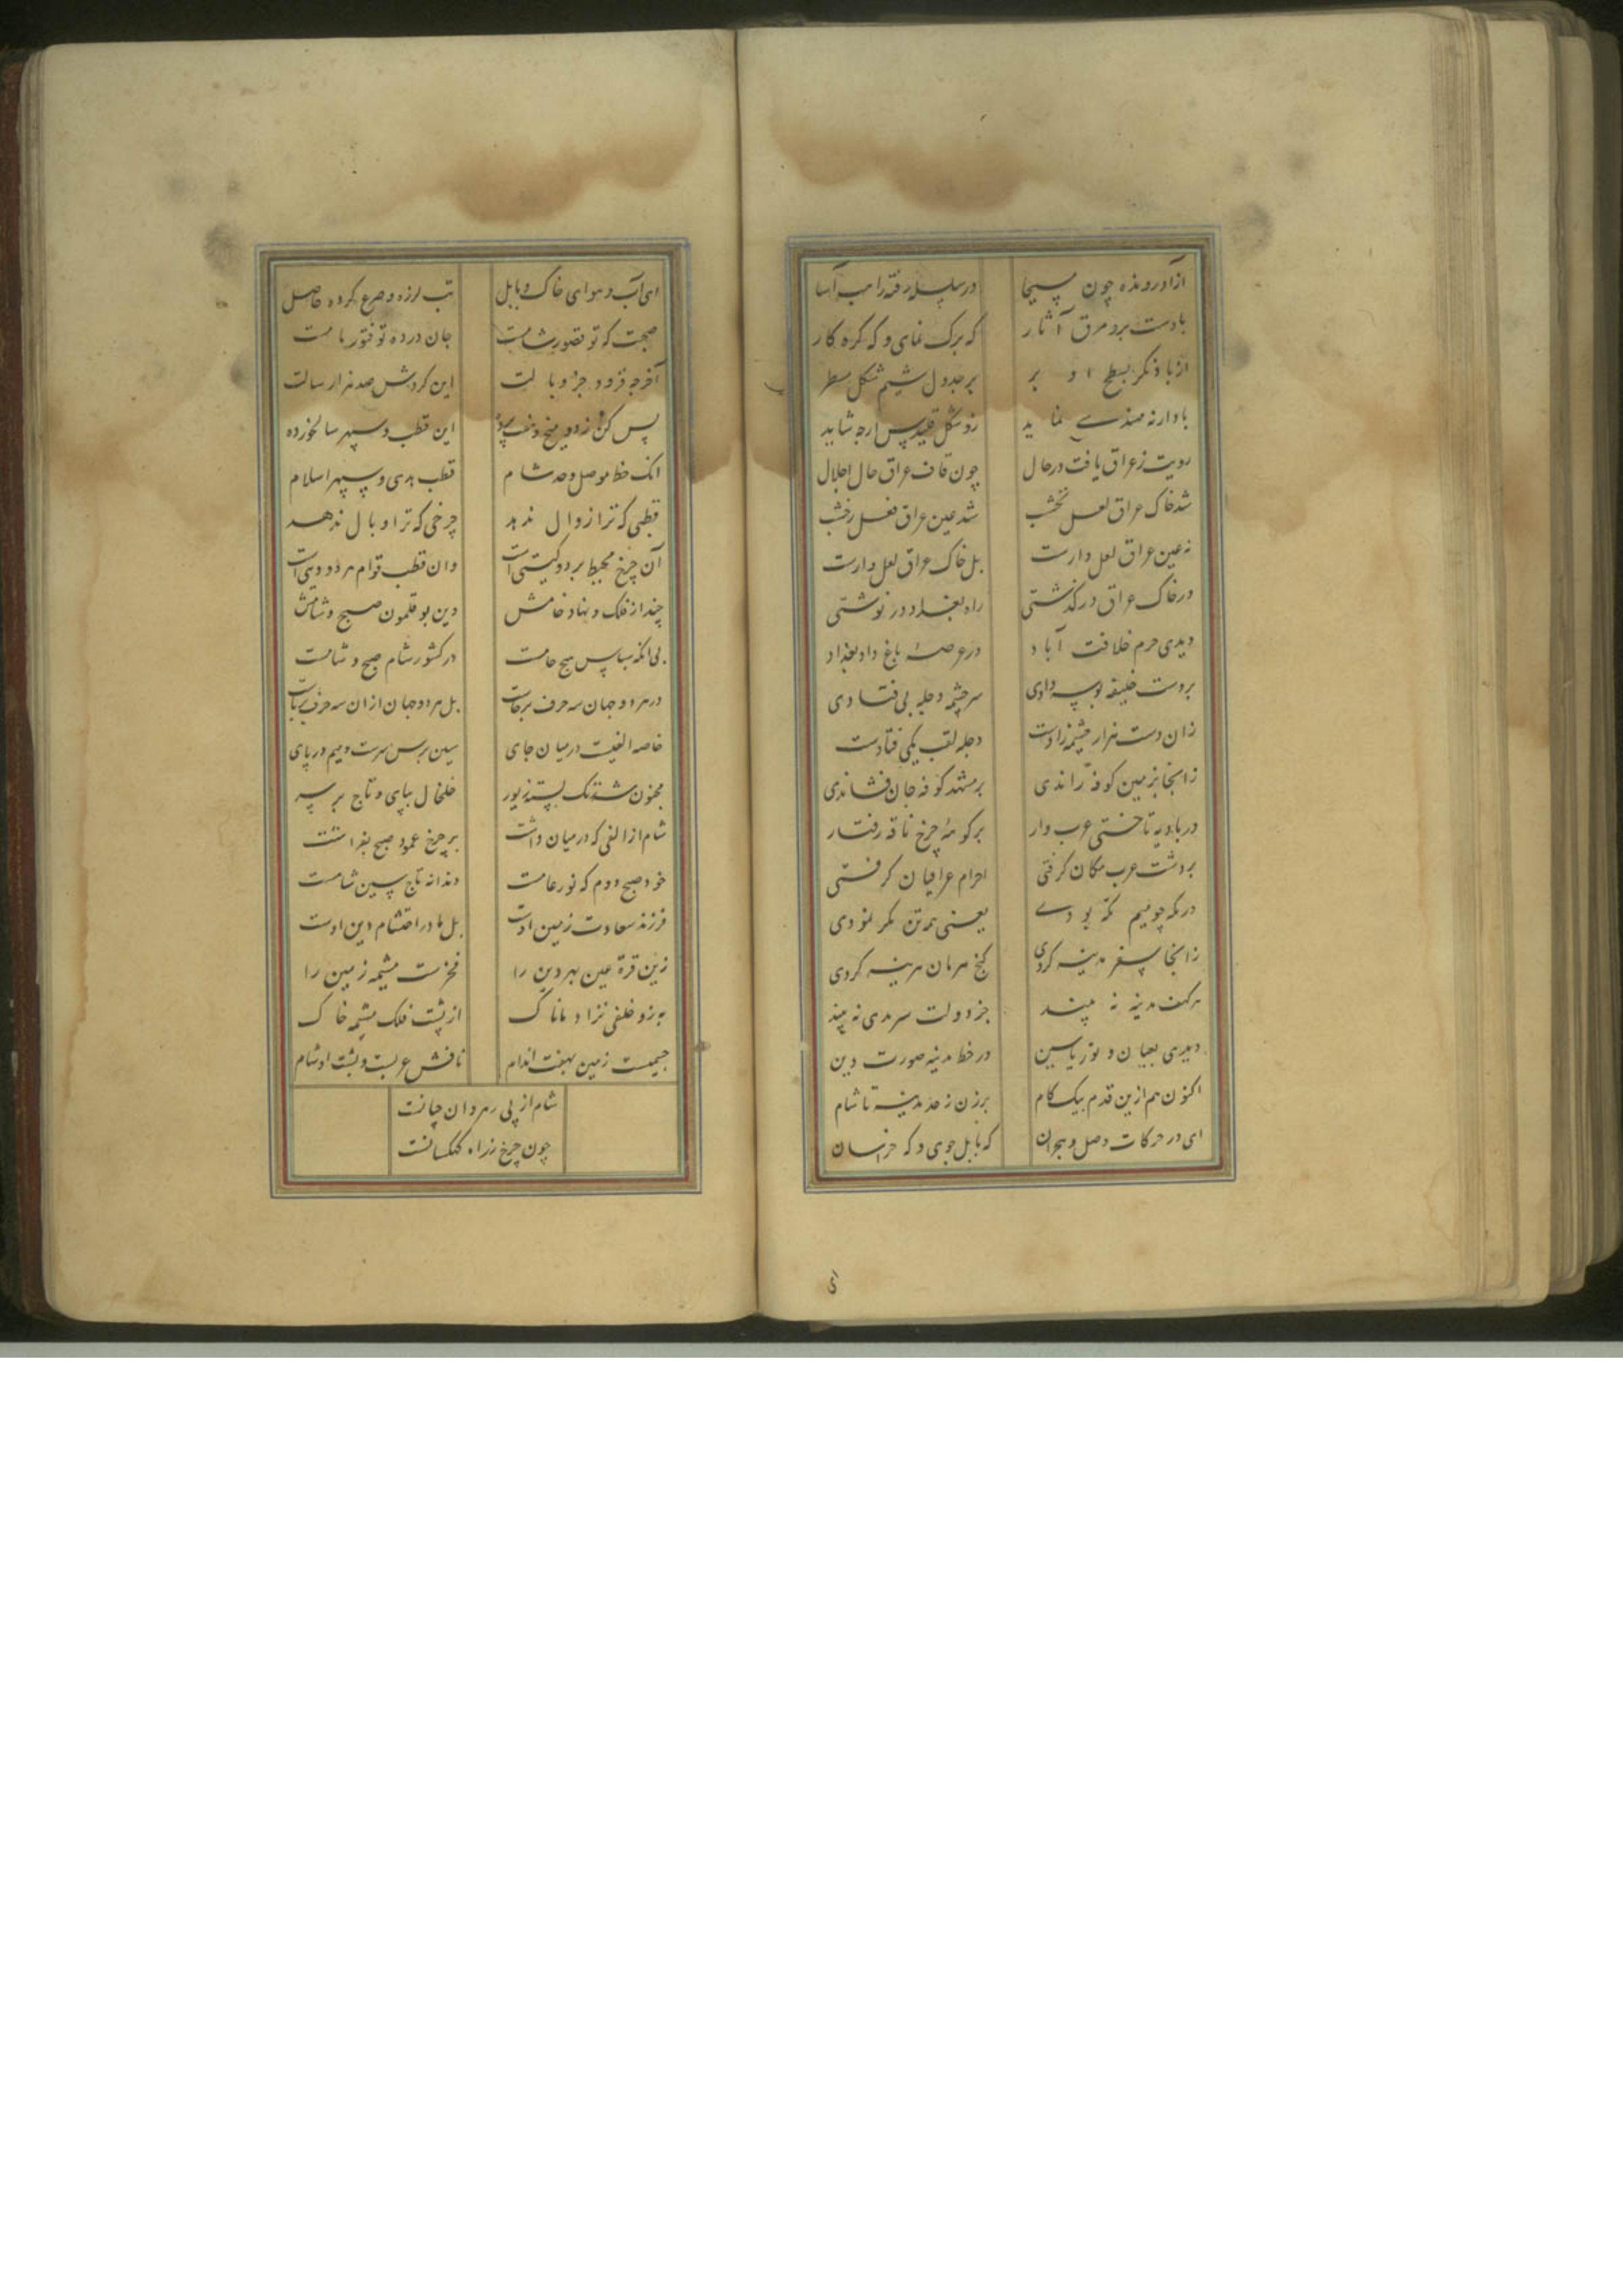 آزاد رونده چون مسیحا در سلسله رفته راهب آسا
بادست برو مرق آثار که برک نمای و که کره کار
از باد نکر بسطح او بر بر جدول سیم شکل مسطر
باد ارنه مهندسی نماید زو شکل اقلیدس ارچه شاید
رویت ز عراق یافت در حال چون قاف عراق حال اجلال
شد خاک عراق لعل نخشب شد عین عراق فعل رخشت
نه عین عراق لعل دارست بل خاک عراق لعل دارست
در خاک عراق درگذشتی راه بغداد در نوشتی
دیدی حرم خلافت آباد در عرصه باغ داد بغداد
بر دست خلیفه بوسه دادی سرچشمه دجله پی فتادی
زان دست هزار چشمه زادست دجله لقب یکی فتادست
زانجا بزمین کوفه راندی بر مشهد کوفه جان فشاندی
در بادیه تاختی عرب وار بر کوهه چرخ ناقه رفتار
بر دشت عرب مکان گرفتی احرام عراقیان گرفتی
در مکه چو میم مکه بودی یعنی همه تن کمر نمودی
زانجا سفر مدینه کردی گنج هرمان هزینه کردی
هرکه مدینه نه پسند جز دولت سرمدی نه بیند
دیدی بعیان و نور یاسین در خط مدینه صورت دین
اکنون هم ازین قدم بیک کام برزن ز حد مدینه تا شام
ای در حرکات وصل و هجران که بابل جوی و که خراسان
ای
ای آب و هوای خاک بابل تب لرزه و صرع کرده حاصل
صحبت که تو تصور شامت جان درده تو فتور بامت
آخر چه فزود جز وبالت این گردش صد هزار سالت
پس کن زدو میخ این قطب و سپهر سالخورده
انک خط موصل وحد شام قطب هدی و سپهر اسلام
قطبی که ترا زوال ندهد چرخی که ترا وبال ندهد
آن چرخ محیط بر دو گیتی است وان قطب قوام هر دو دینی است
چند از فلک و نهاد خامش وین بوقلمون صبح و شامش
بی آنکه سپاس هیچ حامست در کشور شام صبح و شامست
در هر دو جهان سه حرف برخاست بل هر دو جهان از ان سه حرف برپاست
خاصه الفیت در میان جای سین بر سر سرست و میم در پای
مجنون شده تنک بسته زیور خلخال بپای و تاج بر سر
شام از الفی که در میان داشت بر چرخ عمود صبح بفراشت
خود صبح دوم که نور عامست دندانه تاج سین شامست
فرزند سعادت زمین اوست بل مادر احتشام دین اوست
زین قرة عین بهر دین را فخرست مشیمه زمین را
به زو خلفی نزاد مانا ک از پشت فلک مشیمه خاک
جسمیست زمین بهفت اندام نافش عربست و پشت او شام
شام از پی رهروان چنانست
چون چرخ زراه کهکشانست